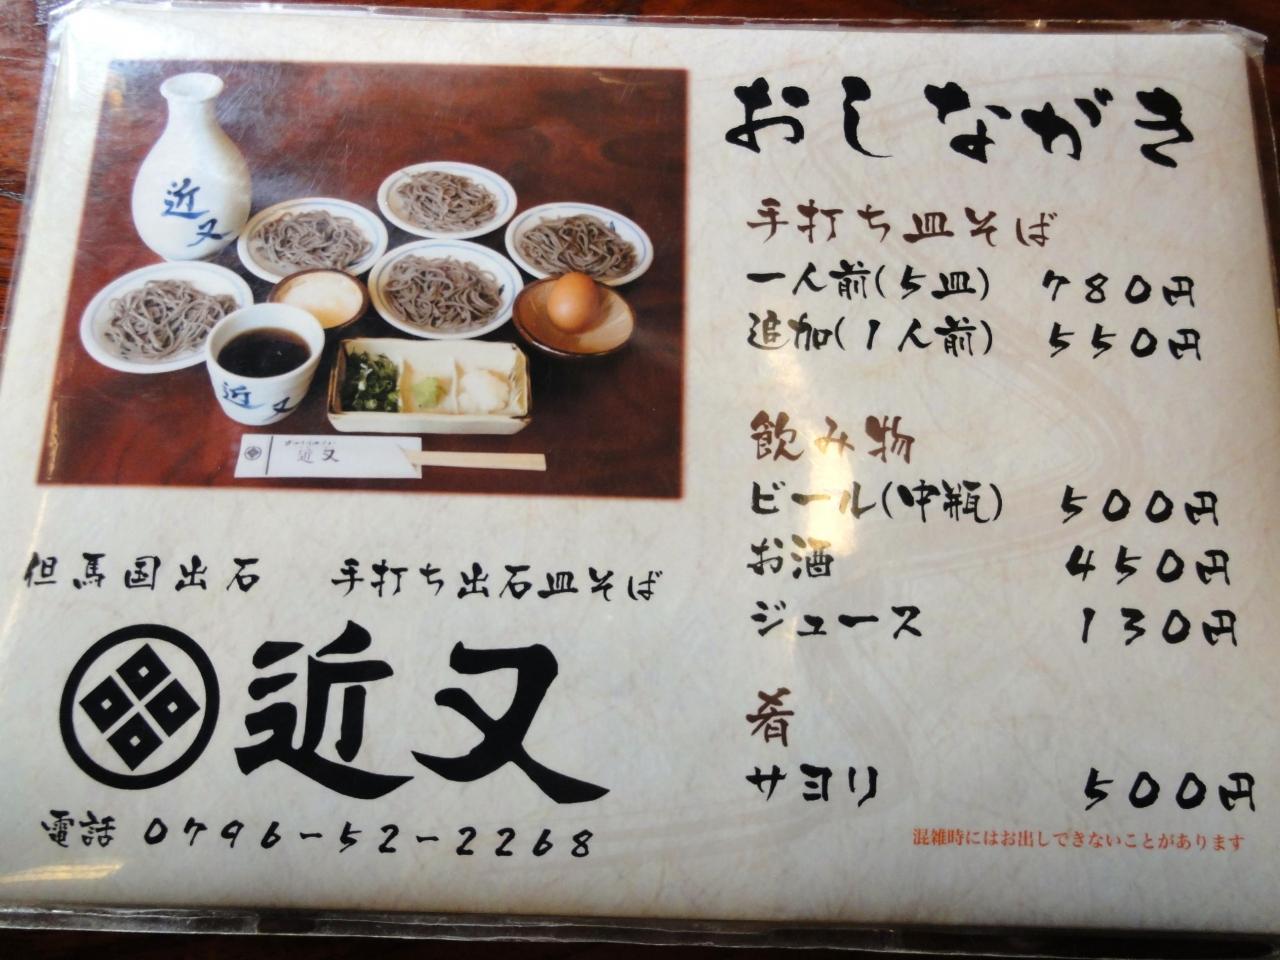 おしながき
手打ち皿そば
一人前(5皿) 780円
追加(1人前) 550円
飲み物
ビール(中瓶) 500円
お酒 450円
ジュース 130円
肴
サヨリ 500円
混雑時にはお出しできないことがあります
近又
近又
近又
但馬国出石 手打ち出石皿そば
近又
電話 0796-52-2268